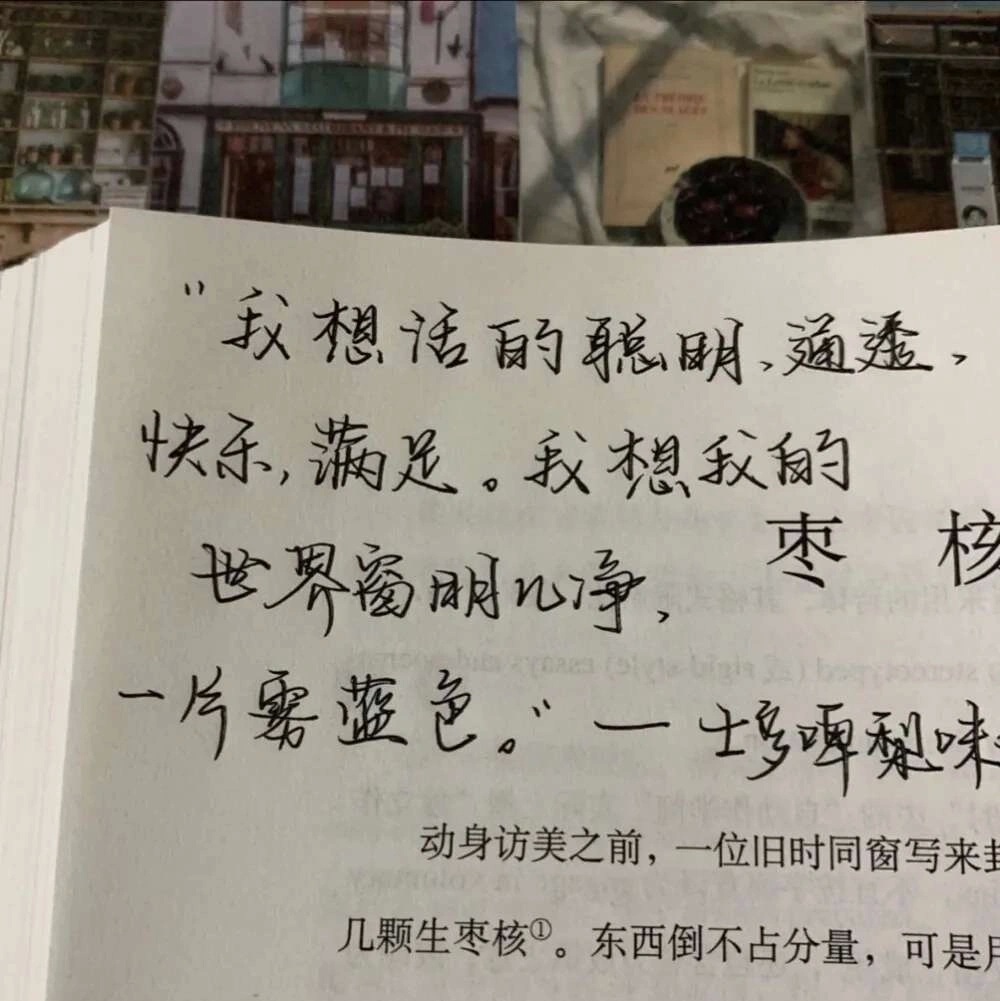 "我想活的聪明、通透,
快乐,满足。我想我的
枣 核
世界窗明几净,
一片雾蓝色。"—士多啤梨味
动身访美之前，一位旧时同窗写来封
几颗生枣核①。东西倒不占分量，可是用